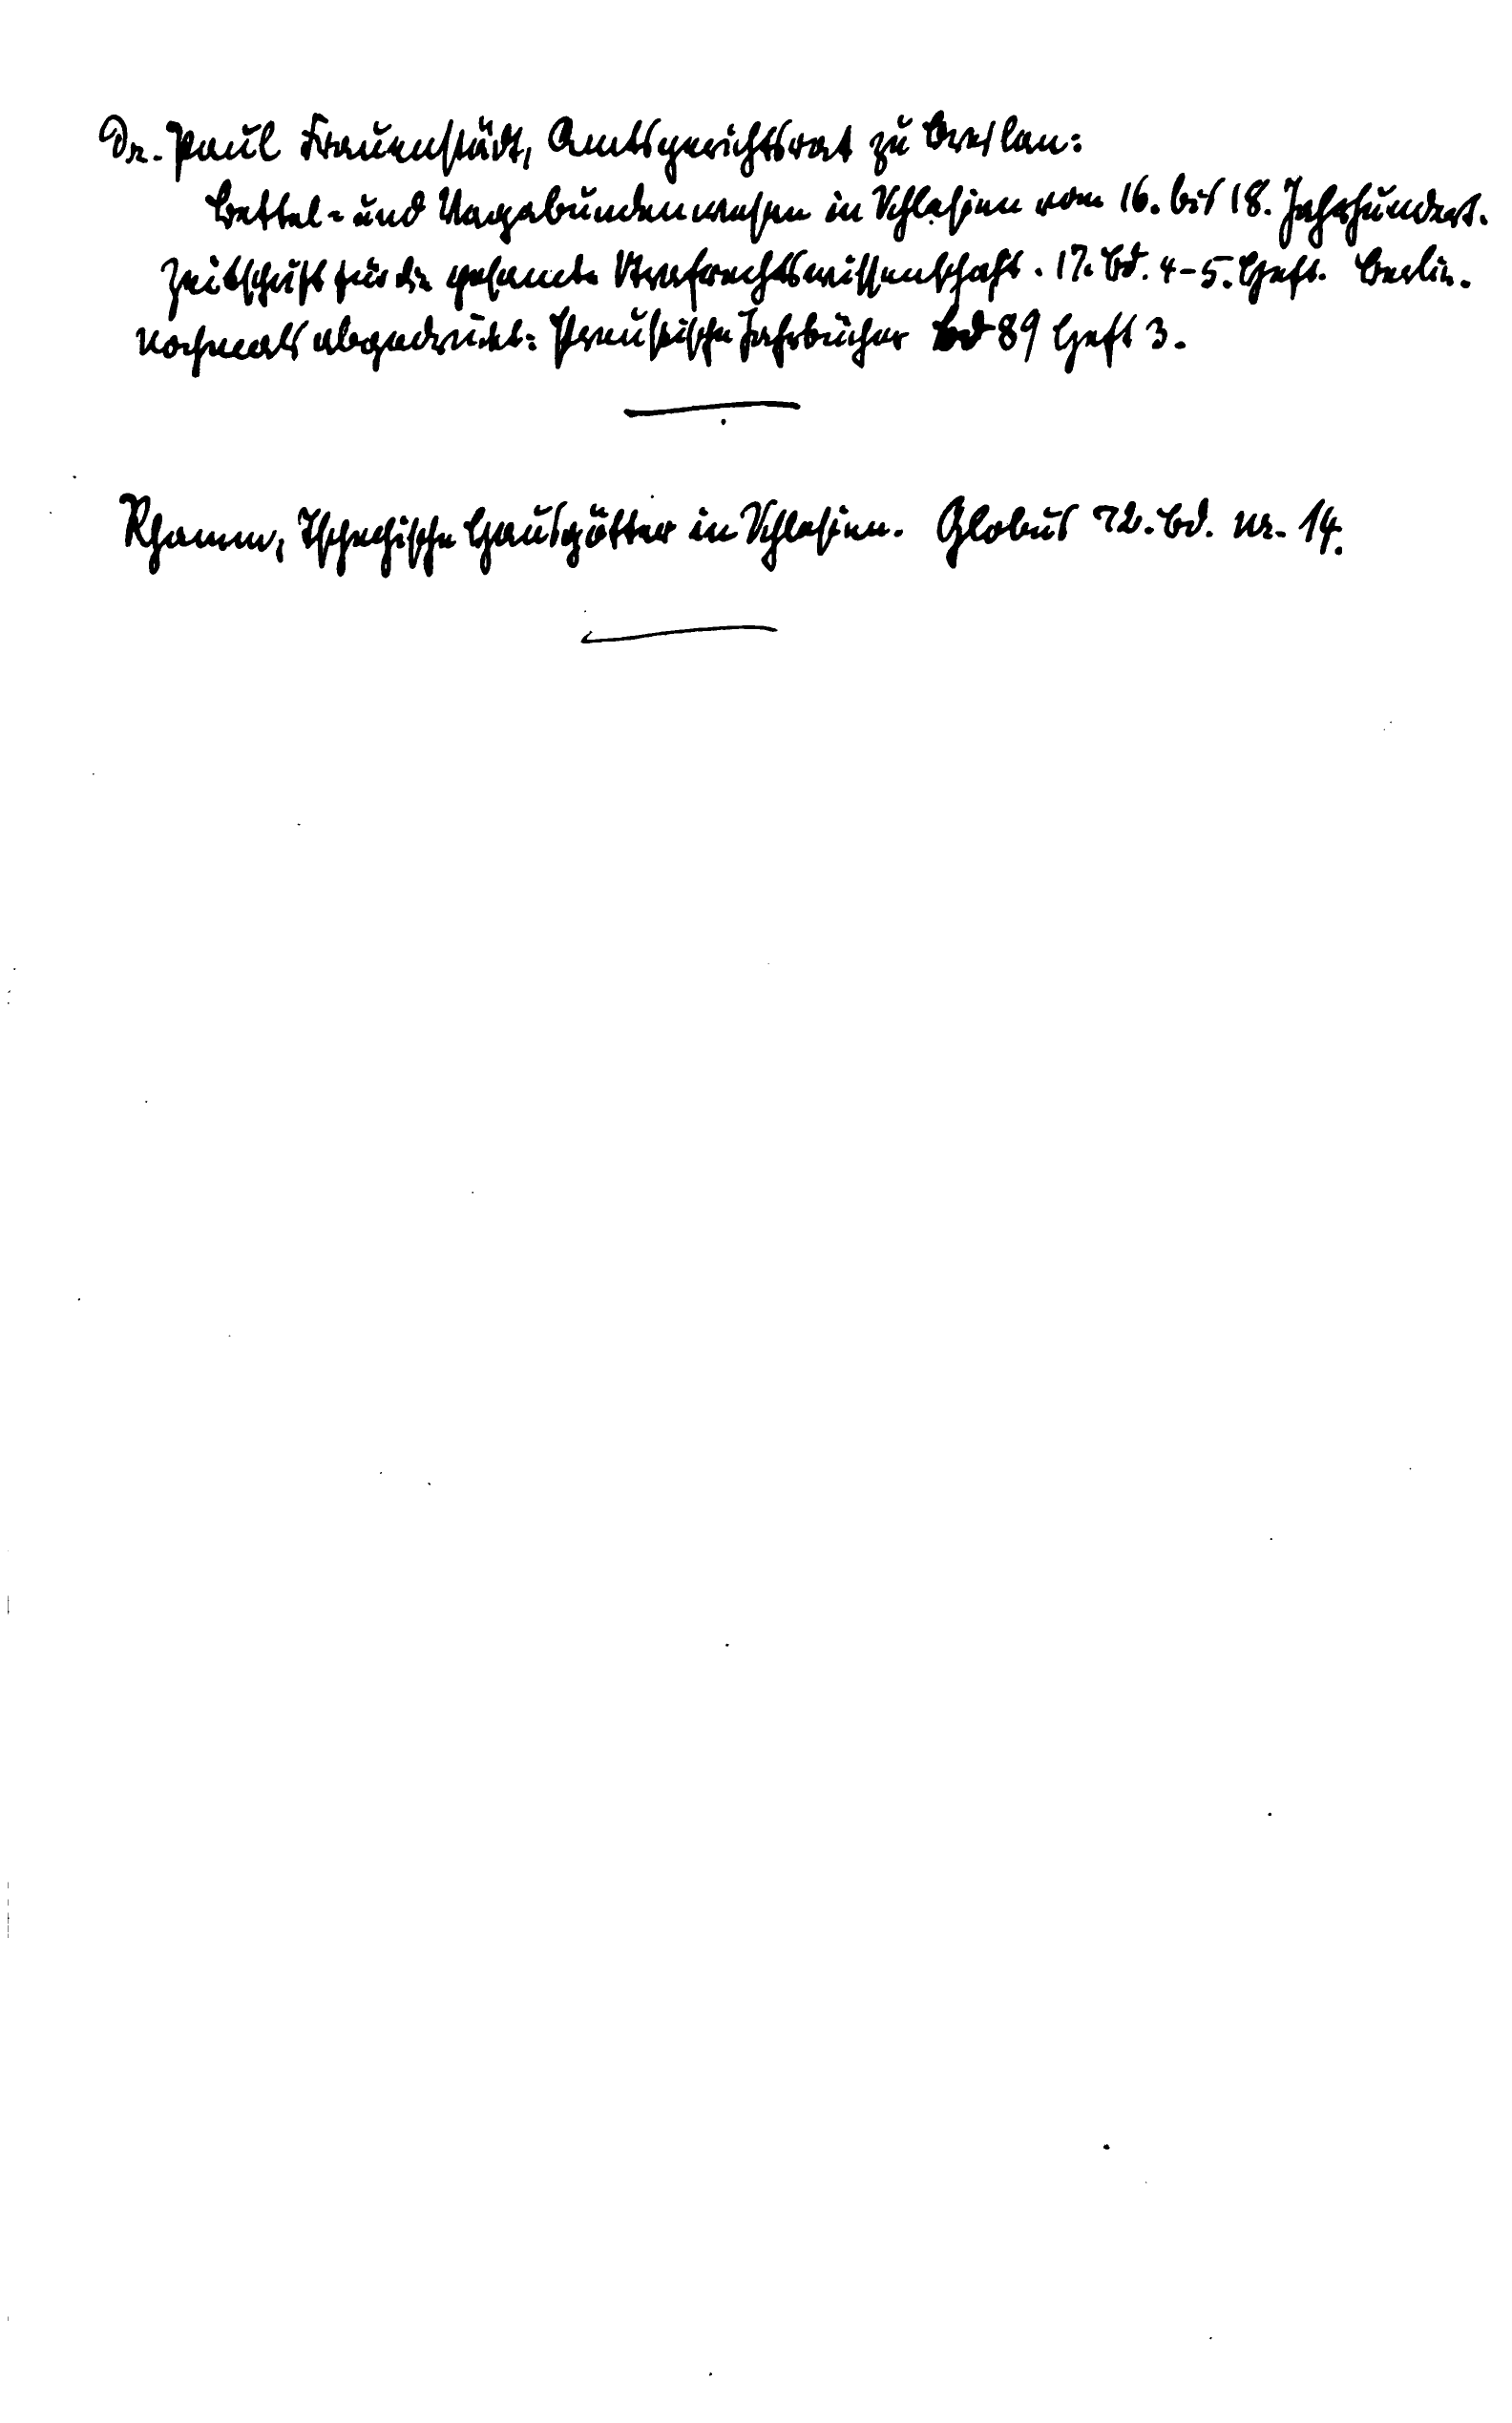 Dr. Paul Frauenstädt, Amtsgerichtsrat zu Breslau:
Bettel- und Vagabundenwesen in Schlesien vom 16. bis 18. Jahrhundert.
Zeitschrift für die gesamte Strafrechtswissenschaft. 17. Bd. 4-5. Heft. Berlin.
Nochmals abgedruckt: Preußische Jahrbücher Bd 89 Heft 3.
Rhamm, Tschechische Hausgötter in Schlesien. Globus 72. Bd. Nr. 14.